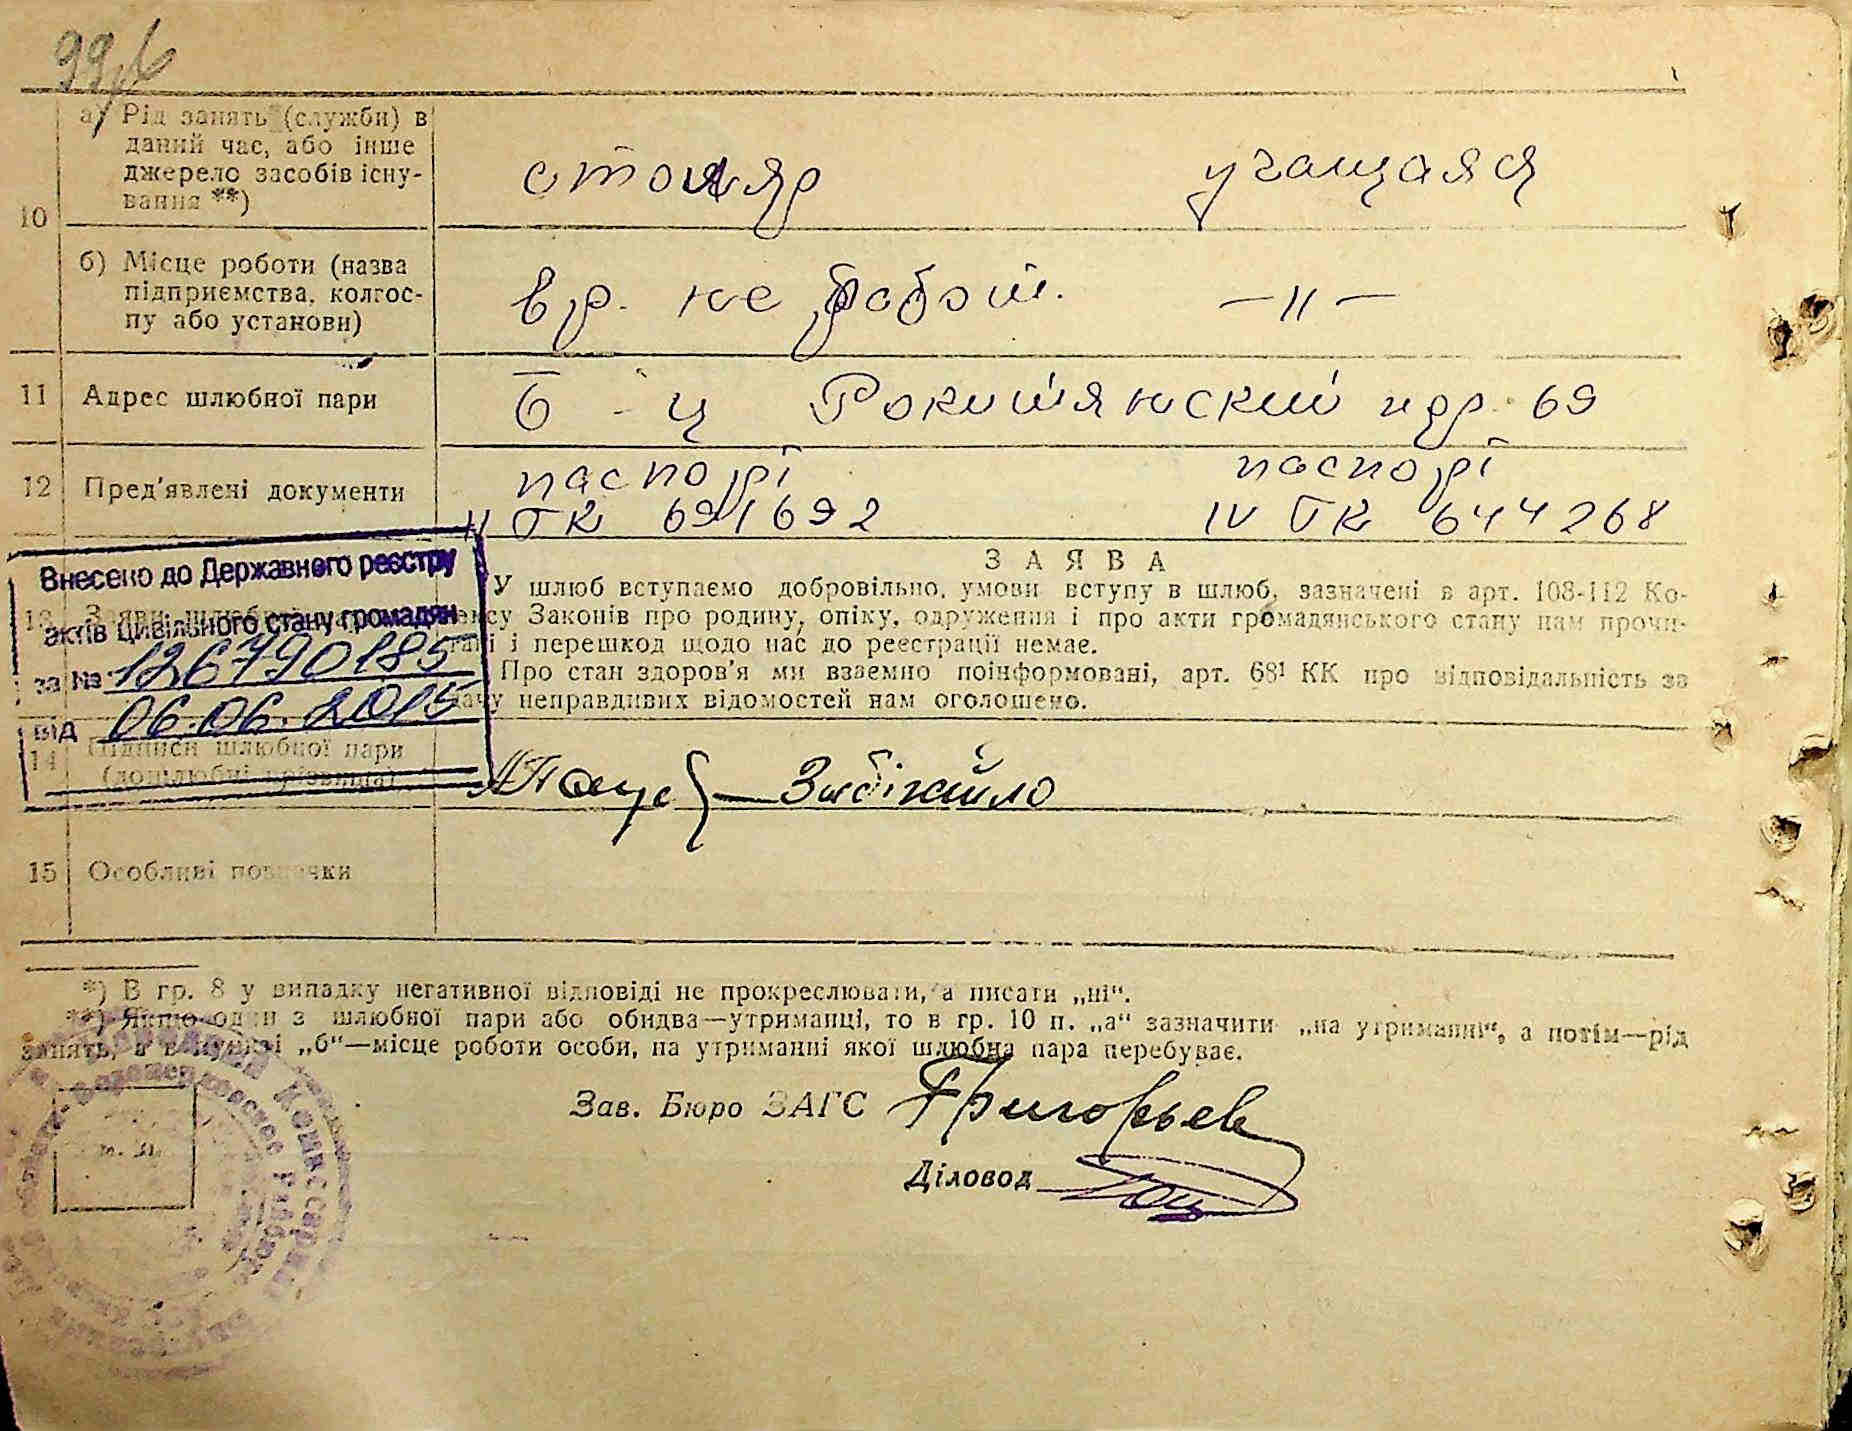 99
10
а) Рід занять (служби) в
даний час, або інше
джерело засобів існу-
вання **)
столяр учащаяся
б) Місце роботи (назва
підприємства, колгос-
пу або установи)
вр. не работ. —"—
11 Адрес шлюбної пари
Б-ц Рокитянский пер. 69
12 Пред'явлені документи
паспорт паспорт
ТК 691692 IV ТК 644268
ЗАЯВА
У шлюб вступаємо добровільно, умови вступу в шлюб, зазначені в арт. 108-112 Ко-
ексу Законів про родину, опіку, одруження і про акти громадянського стану нам прочи-
тані і перешкод щодо нас до реєстрації немає.
Про стан здоров'я ми взаємно поінформовані, арт. 68¹ КК про відповідальність за
дачу неправдивих відомостей нам оголошено.
13
Внесено до Державного реєстру
актів цивільного стану громадян
за № 126790185
від 06.06.2015
14 Підписи шлюбної пари
(дошлюбні прізвища)
15 Особливі позначки
*) В гр. 8 у випадку негативної відповіді не прокреслювати, а писати „ні“.
**) Якщо один з шлюбної пари або обидва—утриманці, то в гр. 10 п. „а“ зазначити „на утриманні“, а потім—рід
занять, а в пункті „б“—місце роботи особи, на утриманні якої шлюбна пара перебуває.
Зав. Бюро ЗАГС Григорьев
Діловод